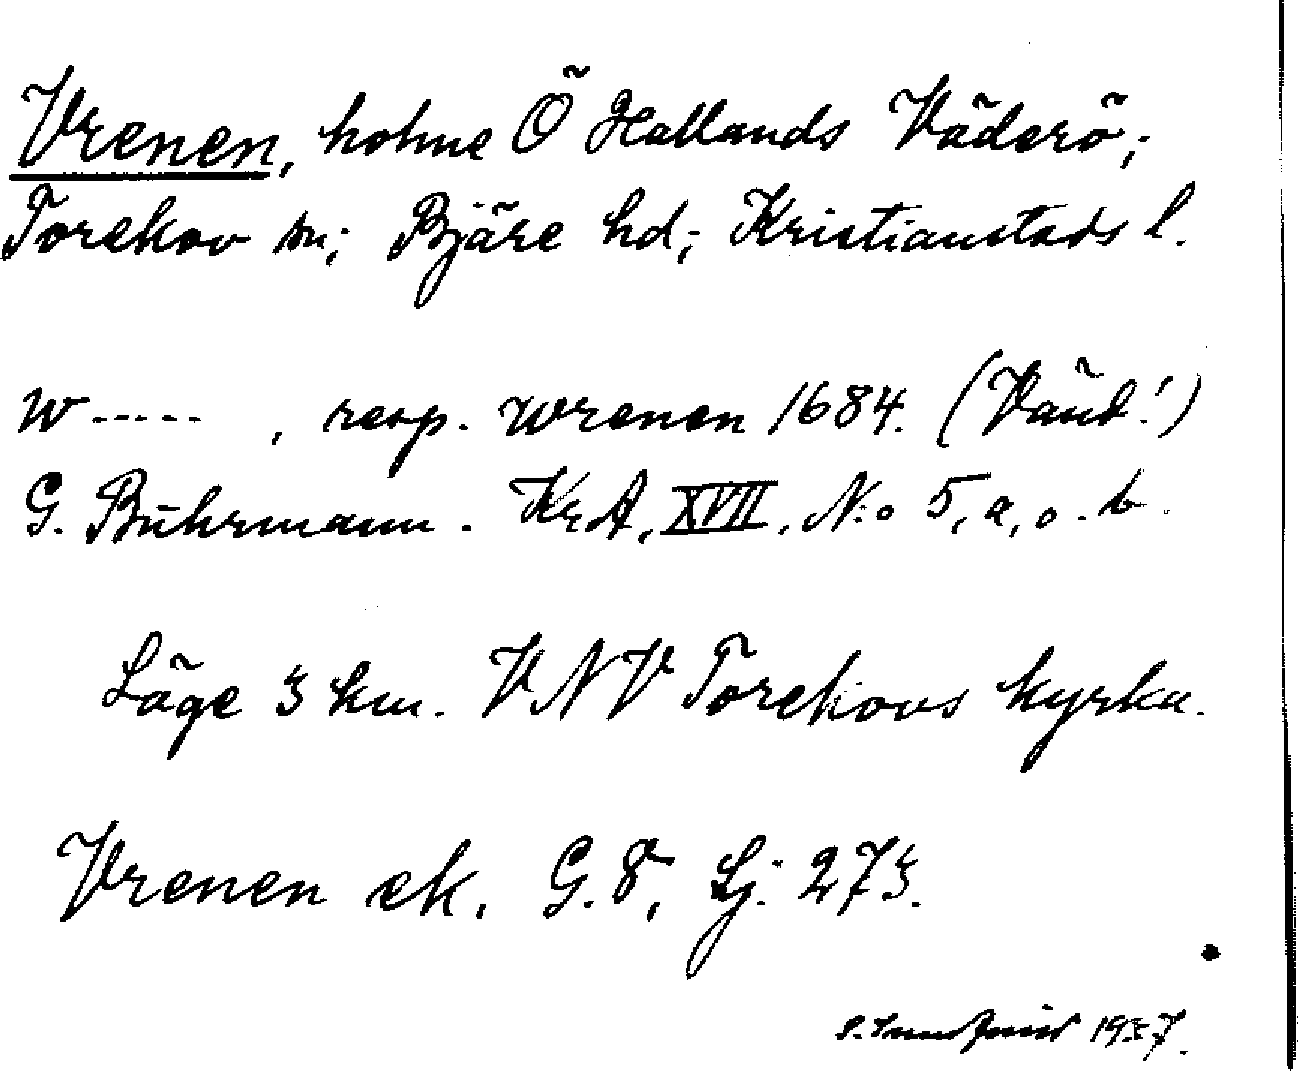 Vrenen, holme Ö Hallands Väderö;
Torekov sn; Bjäre hd; Kristianstads l.
W----- , resp. wrenen 1684. (Vänd!)
G. Buhrmann. Kr.A, XVII, N:o 5, a, o. b.
Läge 3 km. VNV Torekovs kyrka.
Vrenen ek. G. 8, Lj. 273.
1937.